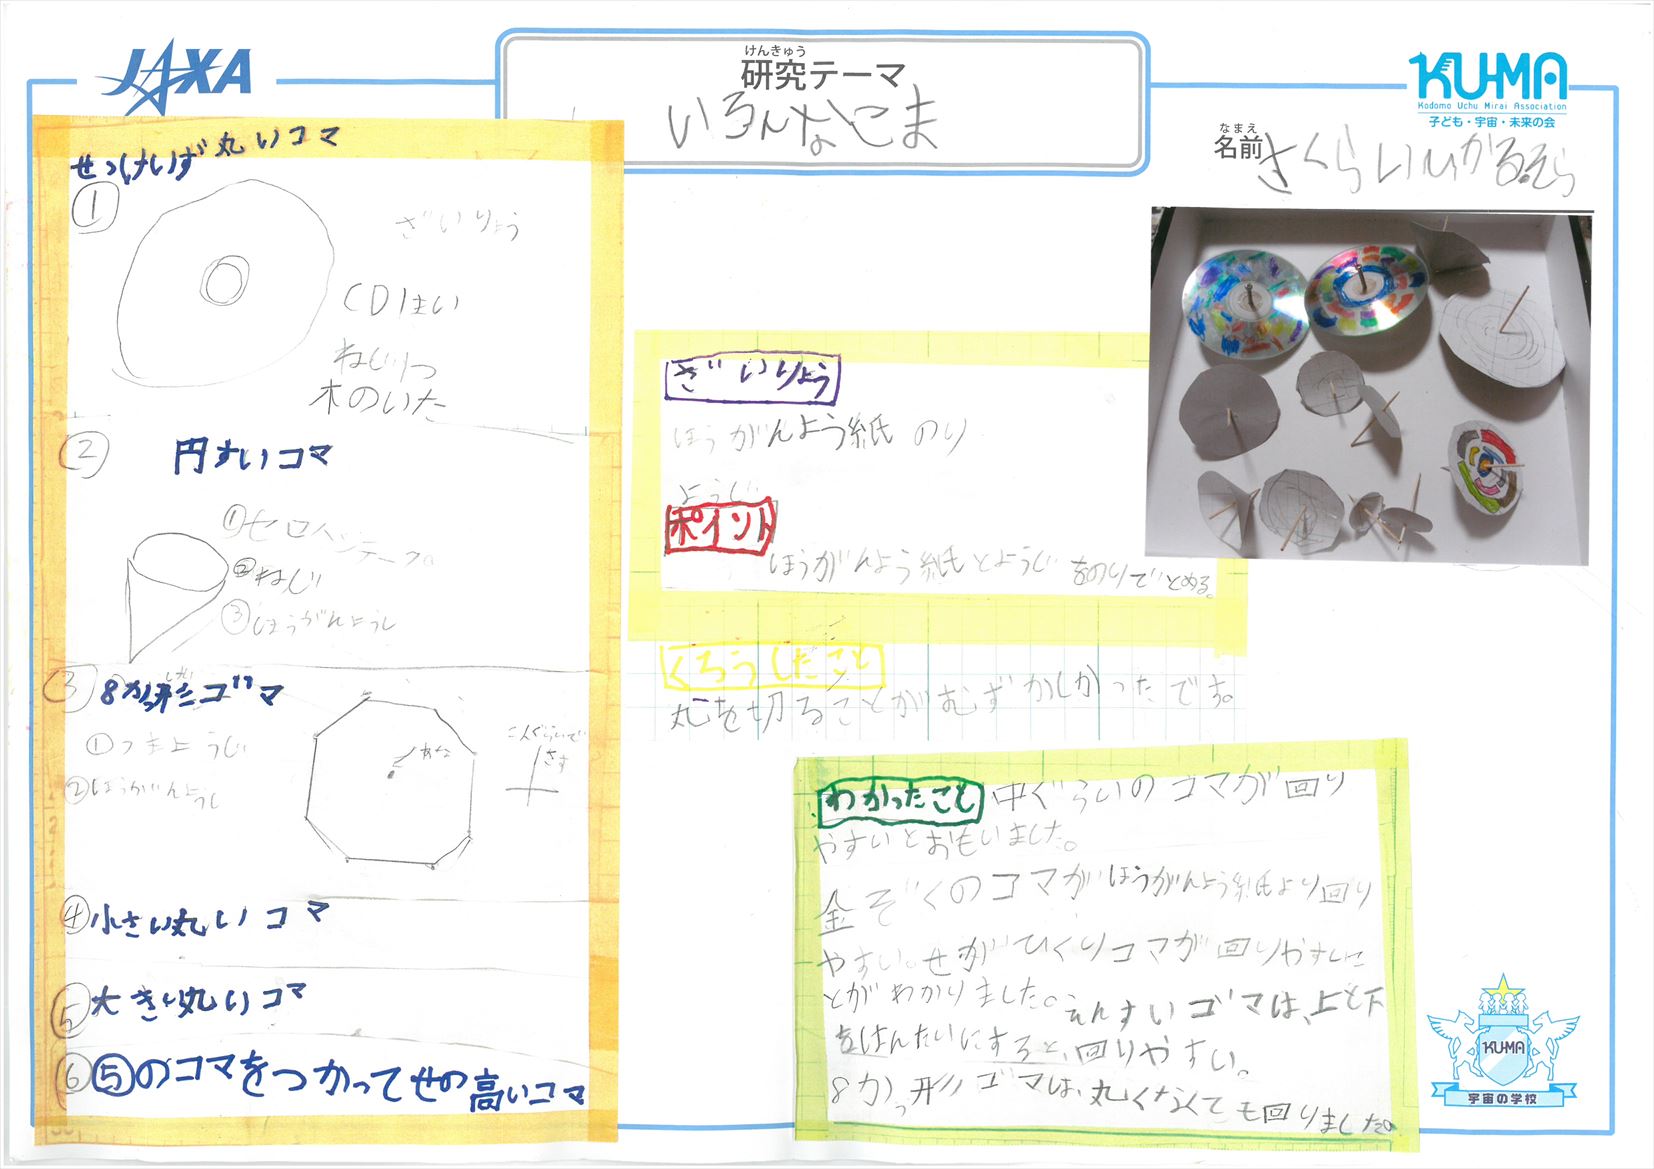 JAXA
けんきゅう
研究テーマ
いろんなこま
KU-MA
Kodomo Uchu Mirai Association
子ども・宇宙・未来の会
なまえ
名前
さくらいひかる.そら
せっけいず 丸いコマ
①
ざいりょう
CD1まい
ねじ1つ
木のいた
② 円すいコマ
①セロハンテープ
②ねじ
③ほうがんようし
③ 8かっ形ゴマ
①つまようじ
②ほうがんようし
あな
こんぐらいで
さす
④小さい丸いコマ
⑤大きい丸いコマ
⑥⑤のコマをつかってせの高いコマ
ざいりょう
ほうがんよう紙 のり
ようじ
ポイント
ほうがんよう紙とようじをのりでとめる。
くろうしたこと
丸を切ることがむずかしかったです。
わかったこと 中ぐらいのコマが回り
やすいとおもいました。
金ぞくのコマがほうがんよう紙より回り
やすい。せがひくいコマが回りやすいこ
とがわかりました。えんすいゴマは、上と下
をはんたいにすると、回りやすい。
8かっ形ゴマは、丸くなくても回りました。
KU-MA
宇宙の学校